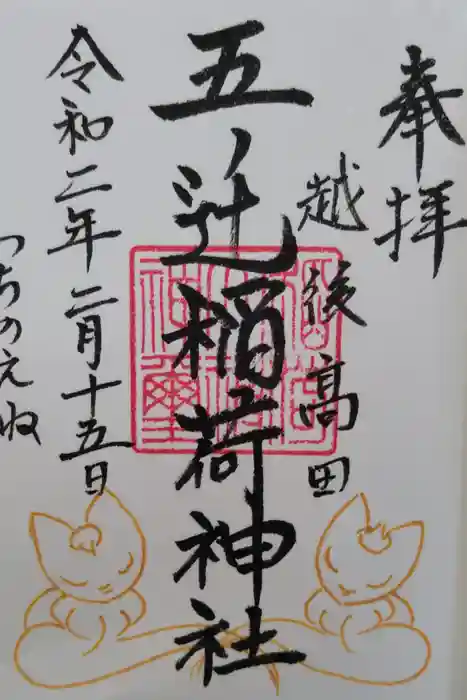 奉拝
越後高田
五辻稲荷神社
令和二年二月十五日
つちのえね